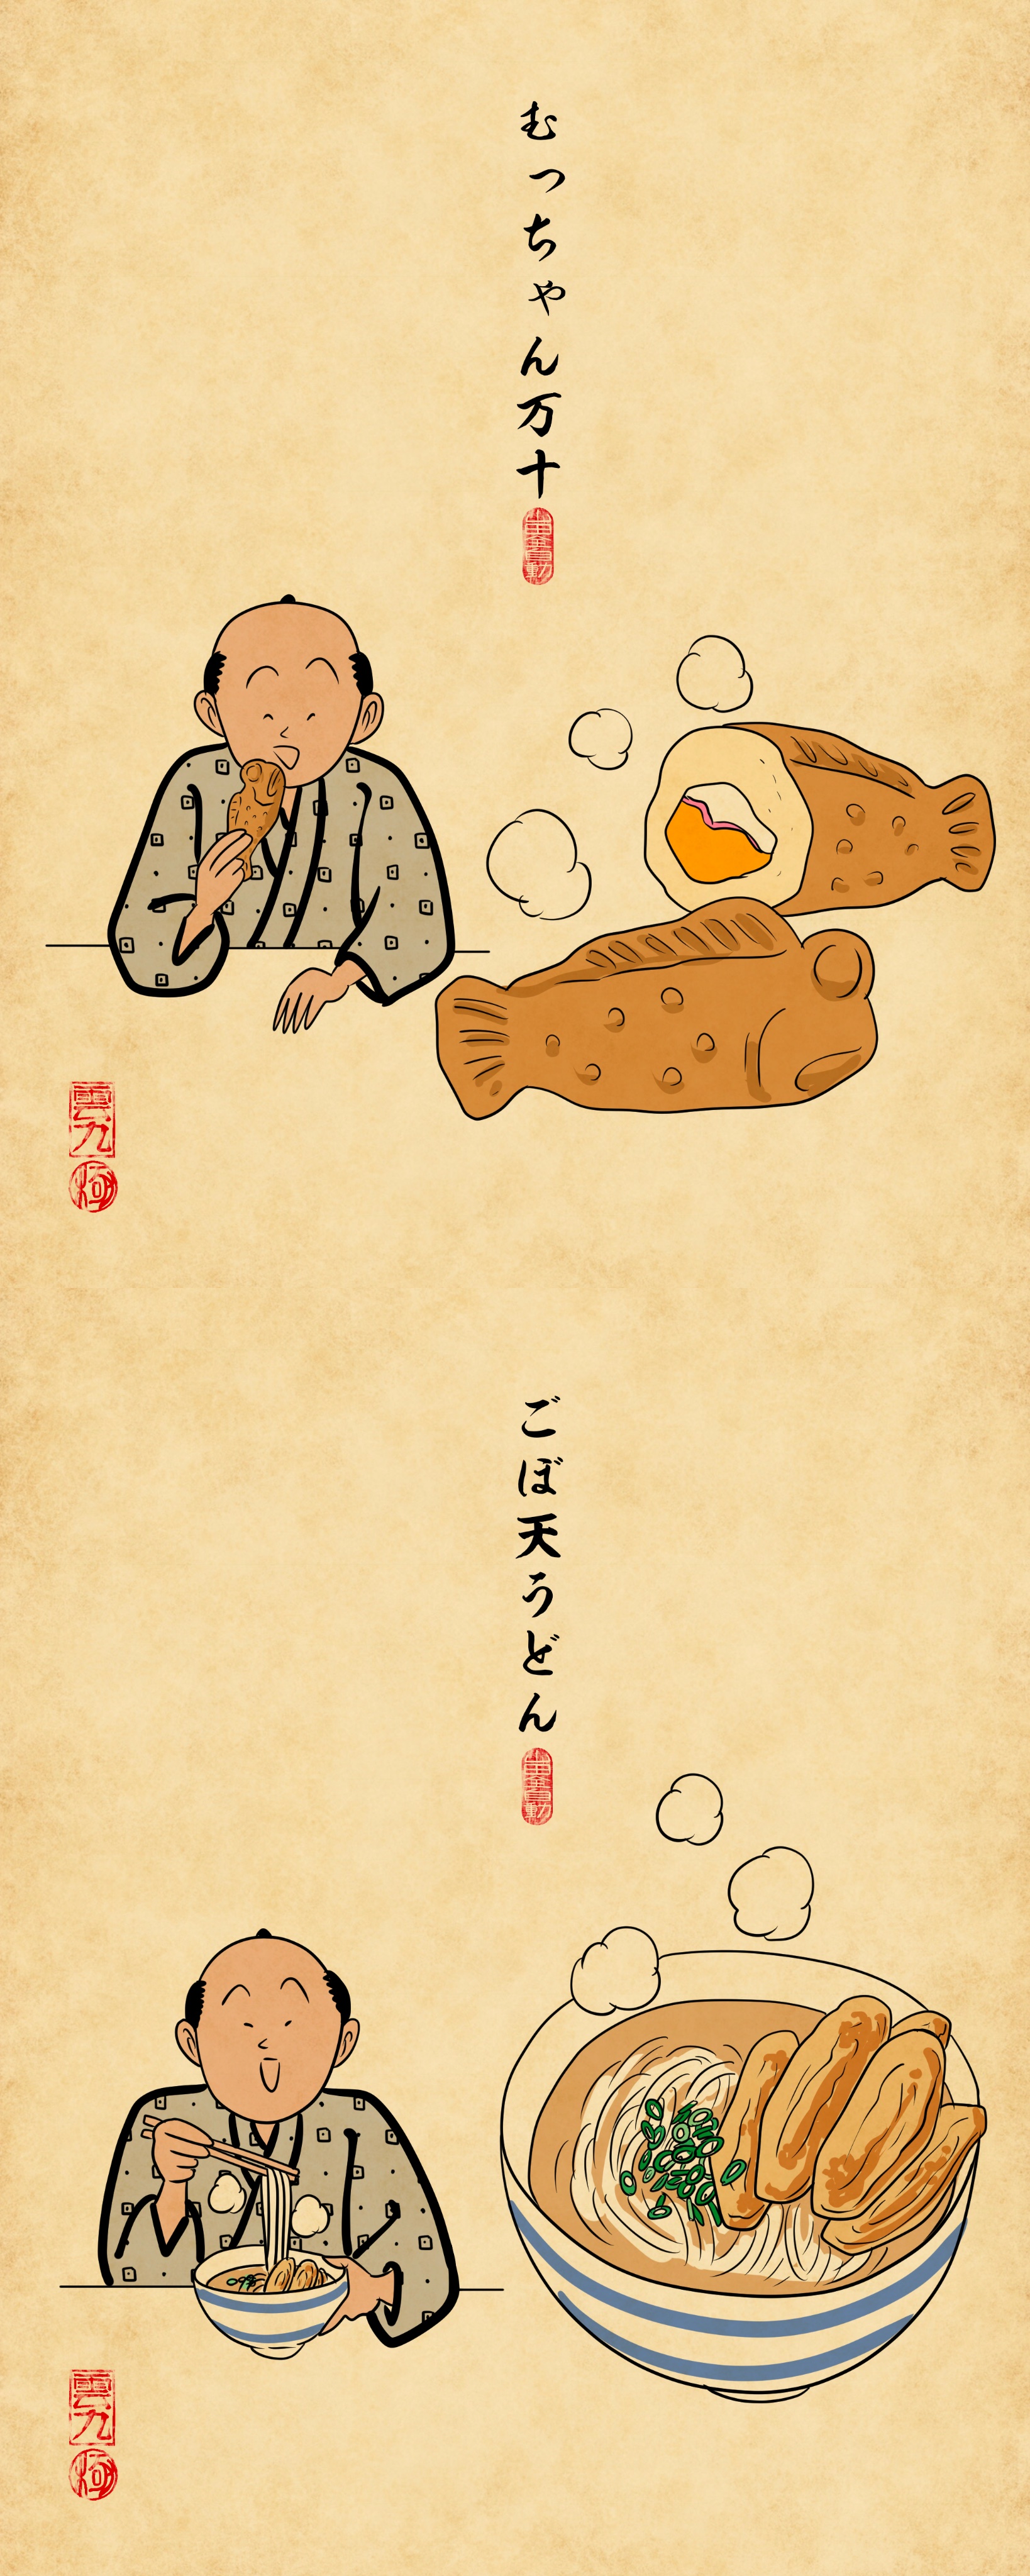 むっちゃん万十
雲丸
ごぼ天うどん
雲丸